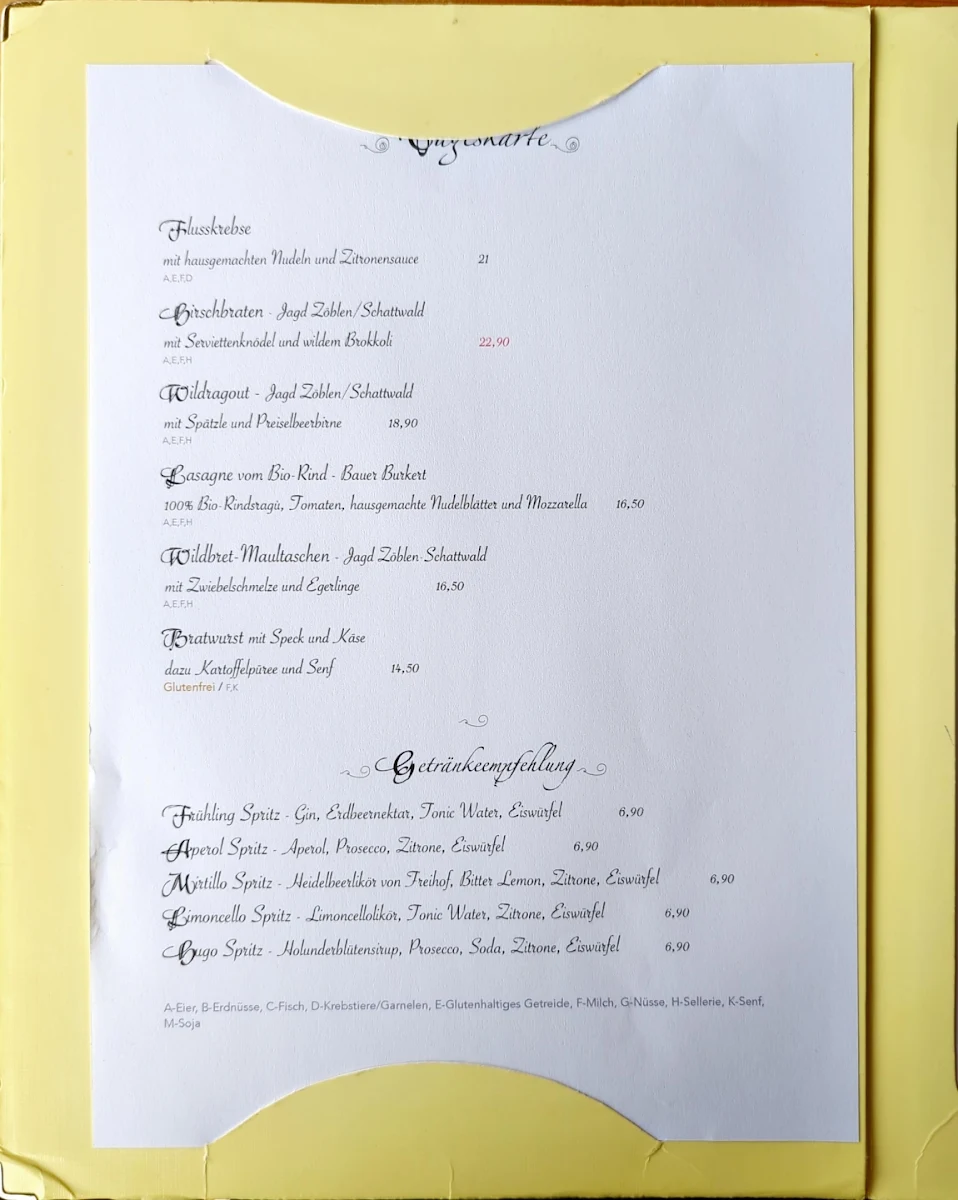 Flusskrebse
mit hausgemachten Nudeln und Zitronensauce 21
A,E,F,D
Hirschbraten - Jagd Zöblen/Schattwald
mit Serviettenknödel und wildem Brokkoli 22,90
A,E,F,H
Wildragout - Jagd Zöblen/Schattwald
mit Spätzle und Preiselbeerbirne 18,90
A,E,F,H
Lasagne vom Bio-Rind - Bauer Burkert
100% Bio-Rindsragù, Tomaten, hausgemachte Nudelblätter und Mozzarella 16,50
A,E,F,H
Wildbret-Maultaschen - Jagd Zöblen-Schattwald
mit Zwiebelschmelze und Egerlinge 16,50
A,E,F,H
Bratwurst mit Speck und Käse
dazu Kartoffelpüree und Senf 14,50
Glutenfrei / F,K
Getränkeempfehlung
Frühling Spritz - Gin, Erdbeernektar, Tonic Water, Eiswürfel 6,90
Aperol Spritz - Aperol, Prosecco, Zitrone, Eiswürfel 6,90
Mirtillo Spritz - Heidelbeerlikör von Freihof, Bitter Lemon, Zitrone, Eiswürfel 6,90
Limoncello Spritz - Limoncellolikör, Tonic Water, Zitrone, Eiswürfel 6,90
Hugo Spritz - Holunderblütensirup, Prosecco, Soda, Zitrone, Eiswürfel 6,90
A-Eier, B-Erdnüsse, C-Fisch, D-Krebstiere/Garnelen, E-Glutenhaltiges Getreide, F-Milch, G-Nüsse, H-Sellerie, K-Senf,
M-Soja